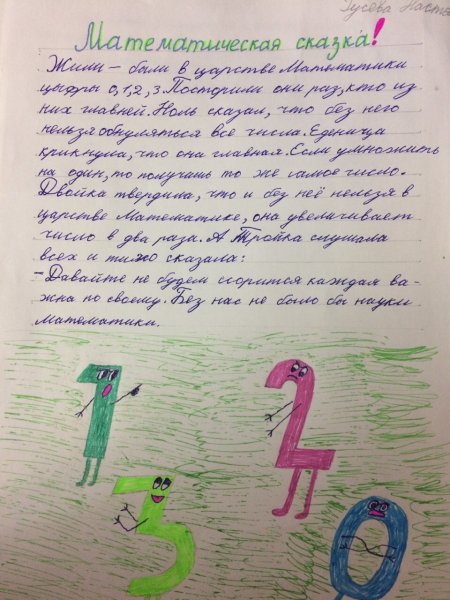 Гусева Настя
Математическая сказка!
Жили-были в царстве Математики
цыфры 0,1,2,3. Поспорили они раз, кто из
них главней. Ноль сказал, что без него
нельзя обнуляться все числа. Еденица
крикнула, что она главная. Если умножить
на один, то получишь то же самое число.
Двойка твердила, что и без неё нельзя в
царстве Математике, она увеличивает
число в два раза. А Тройка слушала
всех и тихо сказала:
- Давайте не будем ссорится каждая ва-
жна по своему. Без нас не было бы науки
математики.
1
2
3
0